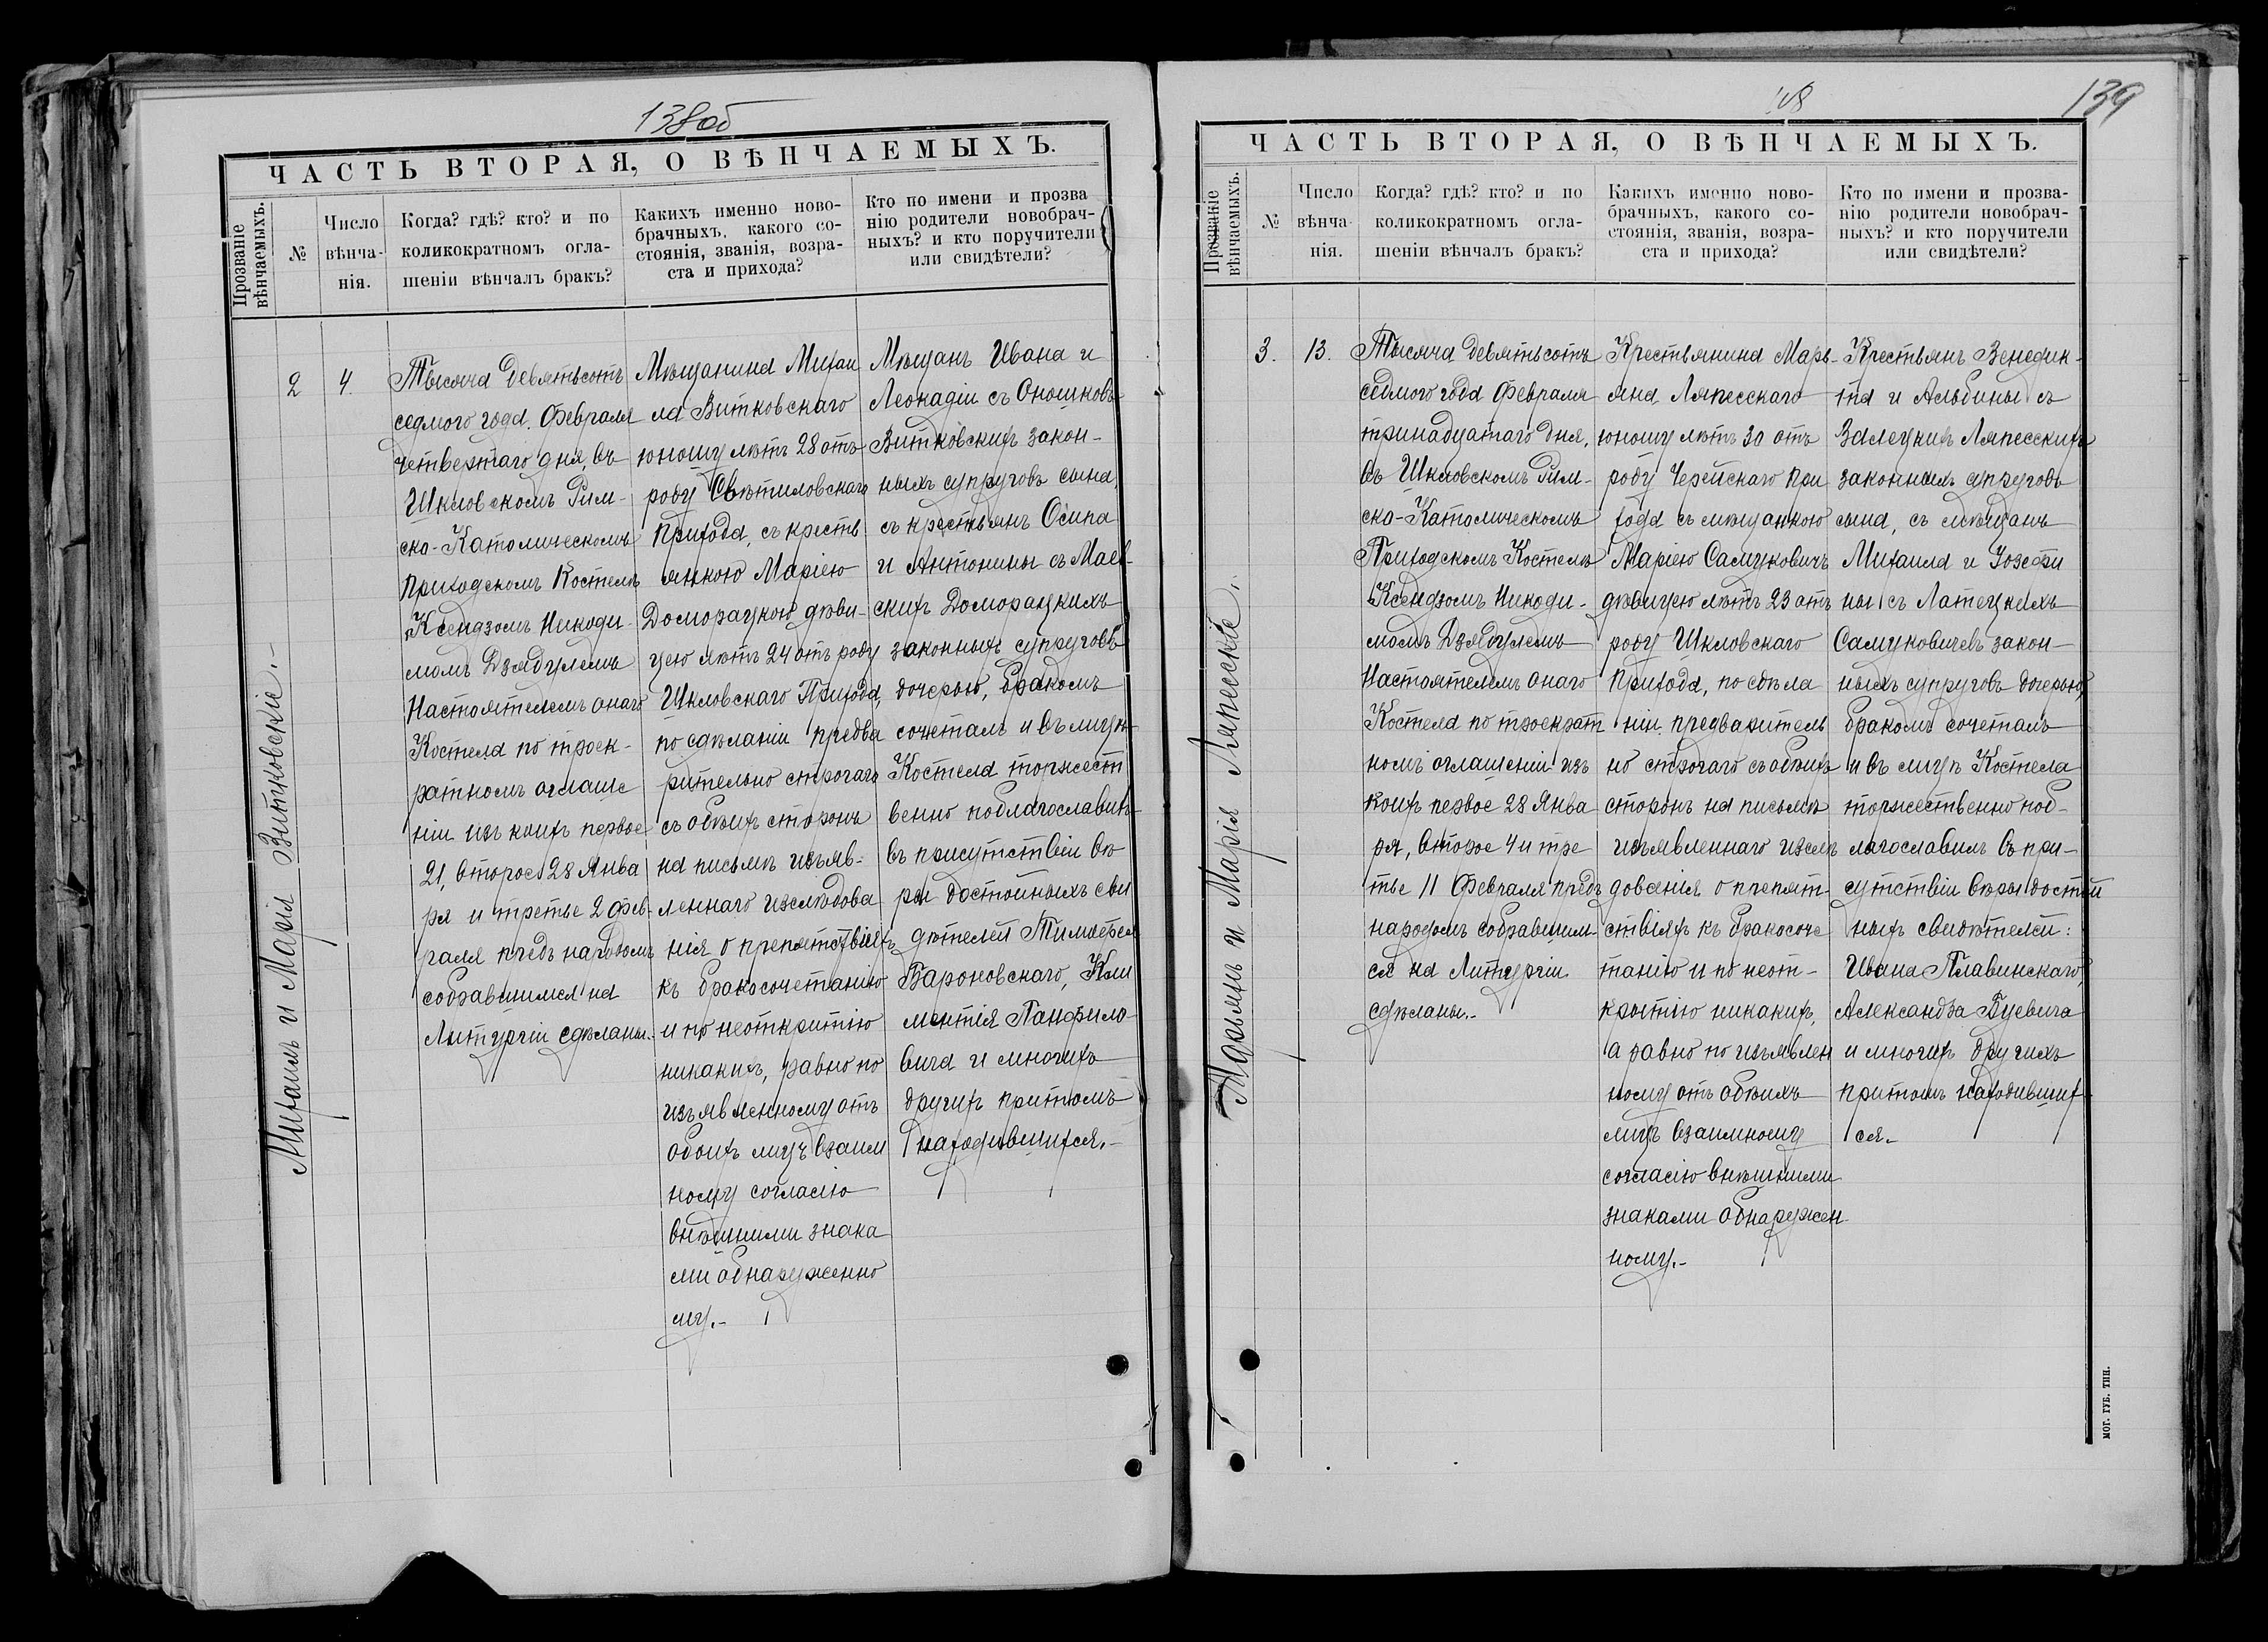 138об
ЧАСТЬ ВТОРАЯ, О ВѢНЧАЕМЫХЪ.
Прозваніе
вѣнчаемыхъ.
№
Число
вѣнча-
нія.
Когда? гдѣ? кто? и по
коликократномъ огла-
шеніи вѣнчалъ бракъ?
Какихъ именно ново-
брачныхъ, какого со-
стоянія, званія, возра-
ста и прихода?
Кто по имени и прозва
нію родители новобрач-
ныхъ? и кто поручители
или свидѣтели?
Михаилъ и Марія Витковскіе.-
2
4.
Тысяча девятьсотъ
седмого года Февраля
четвертаго дня, въ
Шкловскомъ Рим-
ско-Католическомъ
приходскомъ Костелѣ
Ксендзомъ Никоди-
момъ Дзядулемъ
Настоятелемъ онаго
Костела по троек-
ратномъ оглаше
ніи изъ коихъ первое
21, второе 28 Янва
ря и третье 2 Фев-
раля предъ народомъ
собравшимся на
Литургіи сдѣланы.-
Мѣщанина Михаи
ла Витковскаго
юношу лѣтъ 28 отъ
роду Свѣтиловскаго
Прихода, съ кресть
янкою Маріею
Доморацкою дѣви-
цею лѣтъ 24 отъ роду
Шкловскаго Прихода,
по сдѣланіи предва
рительно строгаго
съ обѣихъ сторонъ
на письмѣ изъяв-
леннаго изслѣдова
нія о препятствіяхъ
къ бракосочетанію
и по неоткрытію
никакихъ, равно по
изъявленному отъ
обоихъ лицъ взаим
ному согласію
внѣшними знака
ми обнаруженно
му.-
Мѣщанъ Ивана и
Леокадіи съ Оношковъ
Витковскихъ закон-
ныхъ супруговъ сына,
съ крестьянъ Осипа
и Антонины съ Маев-
скихъ Доморацкихъ
законныхъ супруговъ
дочерью, бракомъ
сочеталъ и въ лицѣ
Костела торжест
венно поблагославилъ
въ присутствіи вѣ
ры достойныхъ сви
дѣтелей Тимофея
Бароновскаго, Кли
ментія Панфило
вича и многихъ
другихъ притомъ
находившихся.-
139
ЧАСТЬ ВТОРАЯ, О ВѢНЧАЕМЫХЪ.
Прозваніе
вѣнчаемыхъ.
№
Число
вѣнча-
нія.
Когда? гдѣ? кто? и по
коликократномъ огла-
шеніи вѣнчалъ бракъ?
Какихъ именно ново-
брачныхъ, какого со-
стоянія, званія, возра-
ста и прихода?
Кто по имени и прозва-
нію родители новобрач-
ныхъ? и кто поручители
или свидѣтели?
Марьянъ и Марія Ляпесскіе.
3.
13.
Тысяча девятьсотъ
седмого года Февраля
тринадцатаго дня,
въ Шкловскомъ Рим-
ско-Католическомъ
Приходскомъ Костелѣ
Ксендзомъ Никоди-
момъ Дзядулемъ
Настоятелемъ онаго
Костела по троекрат
номъ оглашеніи изъ
коихъ первое 28 Янва
ря, второе 4 и тре
тье 11 Февраля предъ
народомъ собравшим-
ся на Литургіи
сдѣланы.-
Крестьянина Марь-
яна Ляпесскаго
юношу лѣтъ 30 отъ
роду Черейскаго При
хода съ мѣщанкою
Маріею Самуковичъ
дѣвицею лѣтъ 23 отъ
роду Шкловскаго
Прихода, по сдѣла
ніи предваритель
но строгаго съ обѣихъ
сторонъ на письмѣ
изъявленнаго изслѣ
дованія о препят-
ствіяхъ къ бракосоче
танію и по неот-
крытію никакихъ,
а равно по изъявлен
ному отъ обѣихъ
лицъ взаимному
согласію внѣшними
знаками обнаружен
ному.-
Крестьянъ Венедик-
та и Альбины съ
Залецкихъ Ляпесскихъ
законныхъ супруговъ
сына, съ мѣщанъ
Михаила и Іозефи
ны съ Латецкихъ
Самуковичевъ закон-
ныхъ супруговъ дочерью,
бракомъ сочеталъ
и въ лицѣ Костела
торжественно поб-
лагославилъ въ при-
сутствіи вѣры достой
ныхъ свидѣтелей:
Ивана Плавинскаго,
Александра Буевича
и многихъ другихъ
притомъ находивших-
ся.-
МОГ. ГУБ. ТИП.